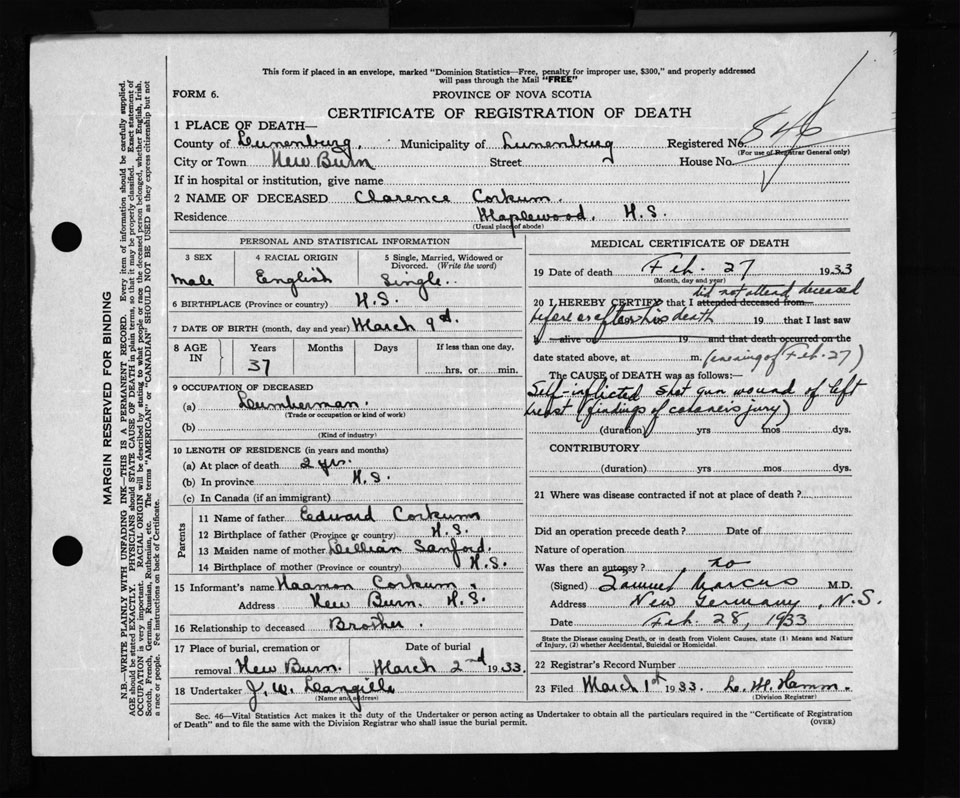 This form if placed in an envelope, marked "Dominion Statistics—Free, penalty for improper use, $300," and properly addressed
will pass through the Mail "FREE"
FORM 6.
PROVINCE OF NOVA SCOTIA
CERTIFICATE OF REGISTRATION OF DEATH
846
1 PLACE OF DEATH—
County of Lunenburg. Municipality of Lunenburg Registered No.
(For use of Registrar General only)
City or Town New Burn Street House No.
If in hospital or institution, give name
2 NAME OF DECEASED Clarence Corkum.
Residence Maplewood. N.S.
(Usual place of abode)
PERSONAL AND STATISTICAL INFORMATION
3 SEX 4 RACIAL ORIGIN 5 Single, Married, Widowed or
Divorced. (Write the word)
Male English Single.
6 BIRTHPLACE (Province or country) N.S.
7 DATE OF BIRTH (month, day and year) March 9
8 AGE
IN
Years Months Days If less than one day,
37 hrs. or min.
9 OCCUPATION OF DECEASED
(a) Lumberman.
(Trade or occupation or kind of work)
(b)
(Kind of industry)
10 LENGTH OF RESIDENCE (in years and months)
(a) At place of death 2 yrs.
(b) In province N.S.
(c) In Canada (if an immigrant)
Parents
11 Name of father Edward Corkum
12 Birthplace of father (Province or country) N.S.
13 Maiden name of mother Lillian Sanford.
14 Birthplace of mother (Province or country) N.S.
15 Informant's name Haamon Corkum.
Address New Burn. N.S.
16 Relationship to deceased Brother.
17 Place of burial, cremation or Date of burial
removal New Burn. March 2nd 1933.
18 Undertaker J. W. Langille
(Name and address)
MEDICAL CERTIFICATE OF DEATH
19 Date of death Feb. 27 1933
(Month, day and year)
did not attend deceased
20 I HEREBY CERTIFY that I attended deceased from
before or after his death 19 that I last saw
h alive on 19 and that death occurred on the
date stated above, at m. (evening of Feb. 27)
The CAUSE OF DEATH was as follows:—
Self-inflicted shot gun wound of left
breast (findings of coroner's jury)
(duration) yrs mos dys.
CONTRIBUTORY
(duration) yrs. mos. dys.
21 Where was disease contracted if not at place of death?
Did an operation precede death? Date of
Nature of operation
Was there an autopsy? no
(Signed) Samuel Marcus M.D.
Address New Germany, N.S.
Date Feb. 28, 1933
State the Disease causing Death, or in death from Violent Causes, state (1) Means and Nature
of Injury, (2) whether Accidental, Suicidal or Homicidal.
22 Registrar's Record Number
23 Filed March 1st 1933. L. H. Hamm.
(Division Registrar)
Sec. 46—Vital Statistics Act makes it the duty of the Undertaker or person acting as Undertaker to obtain all the particulars required in the "Certificate of Registration
of Death" and to file the same with the Division Registrar who shall issue the burial permit.
(OVER)
MARGIN RESERVED FOR BINDING
N.B.—WRITE PLAINLY WITH UNFADING INK—THIS IS A PERMANENT RECORD. Every item of information should be carefully supplied.
AGE should be stated EXACTLY. PHYSICIANS should STATE CAUSE OF DEATH in plain terms, so that it may be properly classified. Exact statement of
OCCUPATION is very important. RACIAL ORIGIN will be described by stating to what people or race the deceased person belonged, whether English, Irish,
Scotch, French, German, Russian, Ruthenian, etc. The terms "AMERICAN" or "CANADIAN" SHOULD NOT BE USED as they express citizenship but not
a race or people. Fee instructions on back of Certificate.